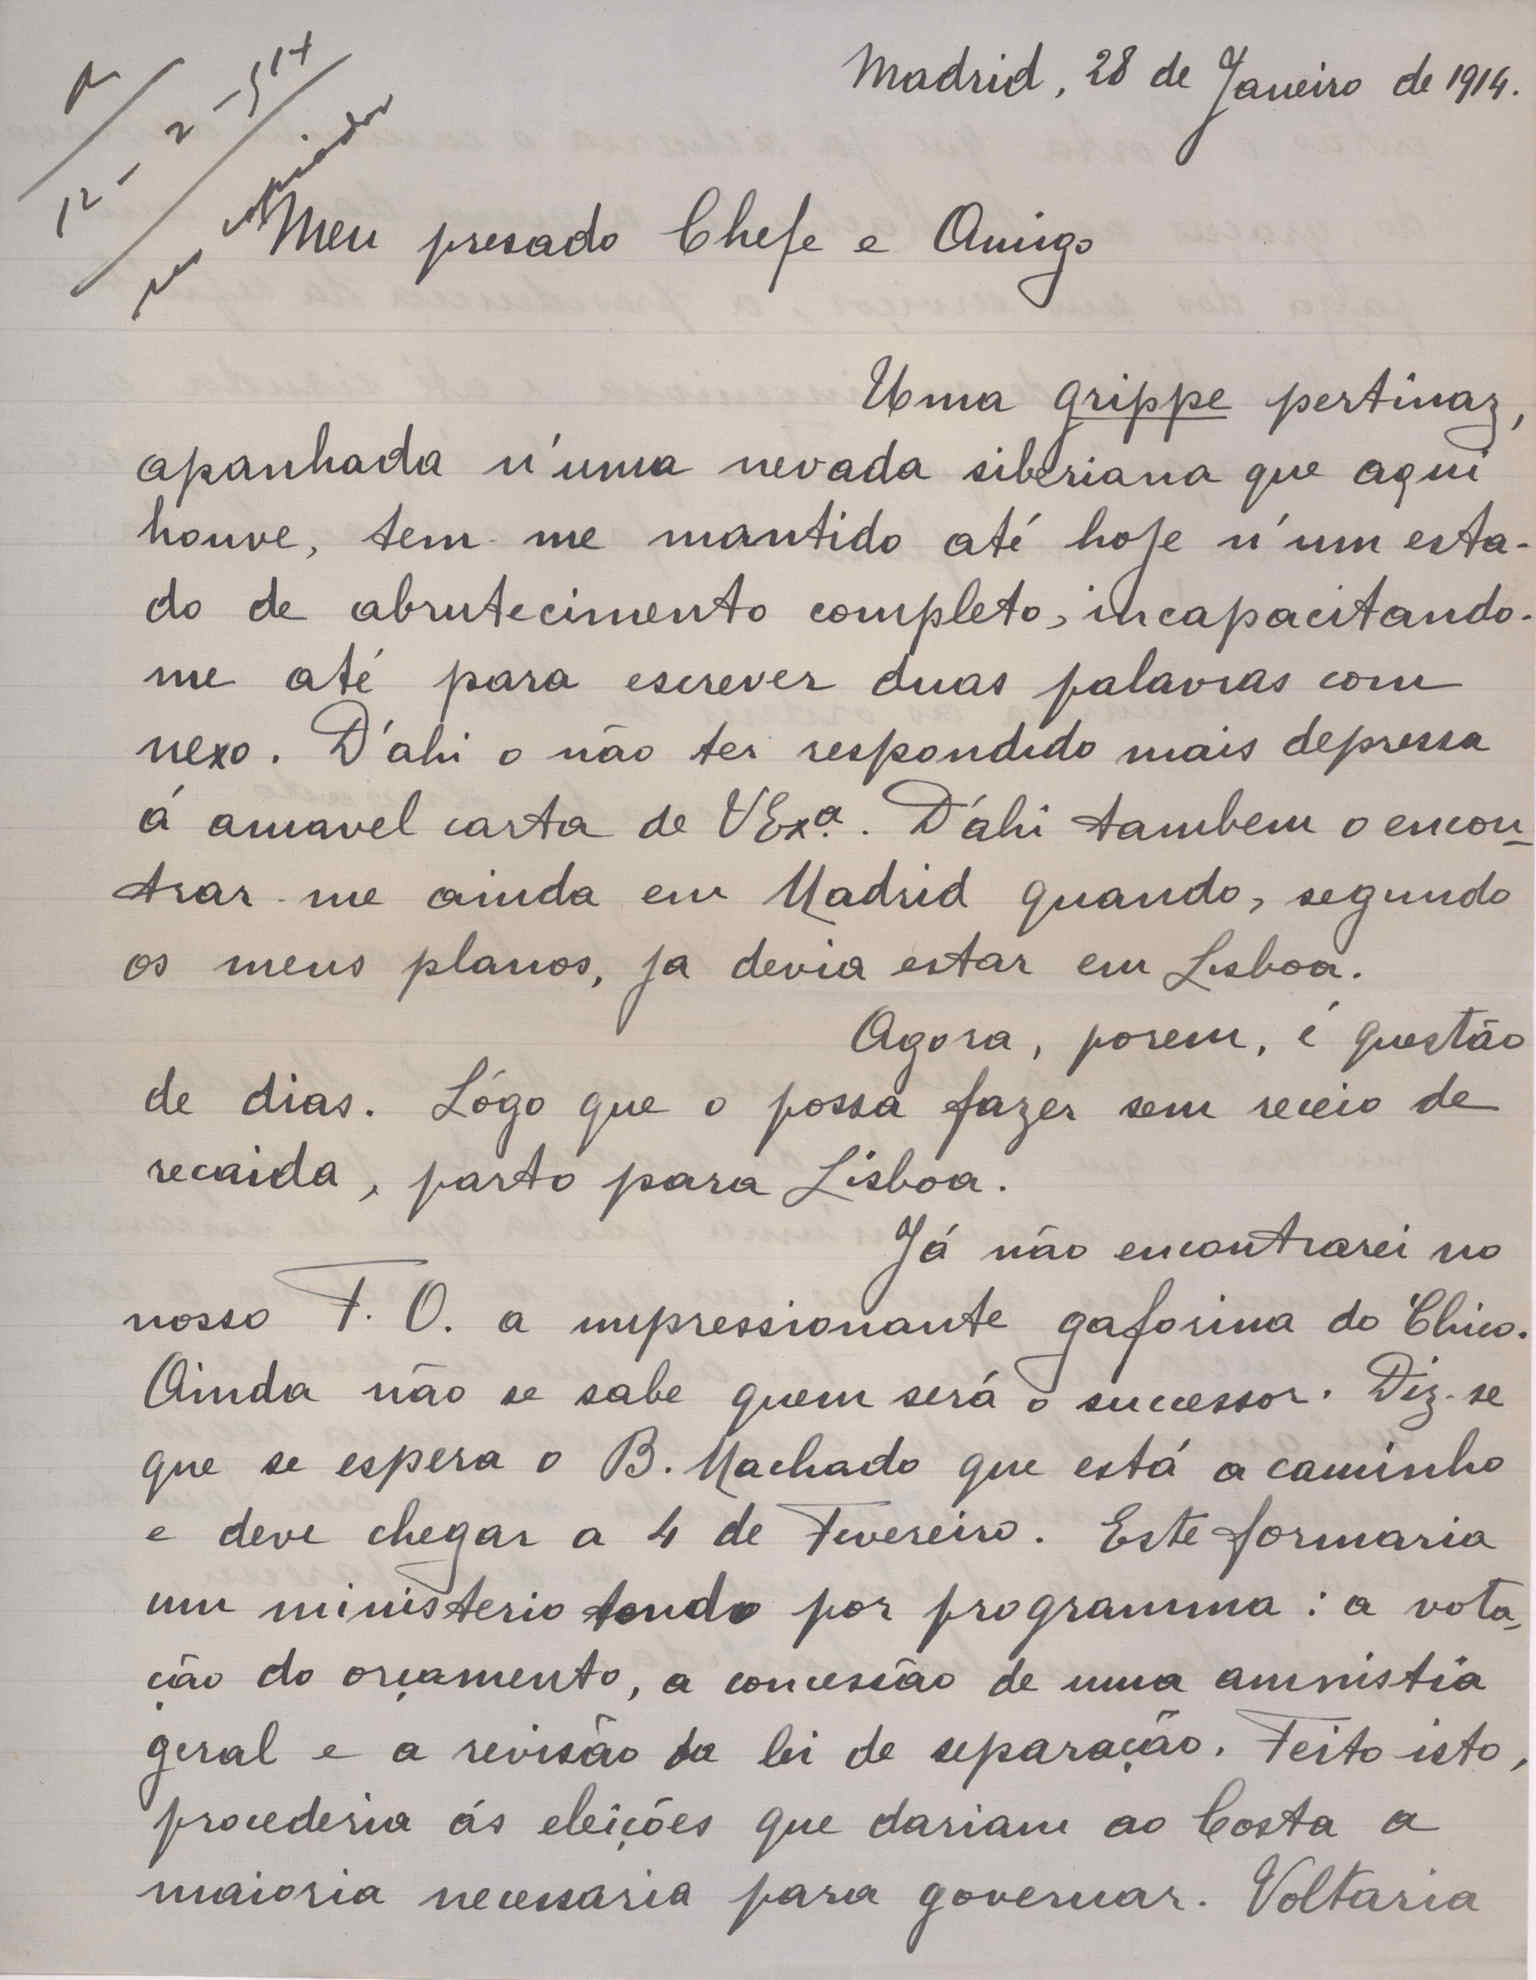 R
12 - 2 - 914
Madrid, 28 de Janeiro de 1914.
Meu presado Chefe e Amigo
Uma grippe pertinaz,
apanhada n'uma nevada siberiana que aqui
houve, tem-me mantido até hoje n'um esta-
do de abrutecimento completo, incapacitando-
me até para escrever duas palavras com
nexo. D'ahi o não ter respondido mais depressa
á amavel carta de VExª. D'áhi tambem o encon-
trar-me ainda em Madrid quando, segundo
os meus planos, ja devia estar em Lisboa.
Agora, porem, é questão
de dias. Lógo que o possa fazer sem receio de
recaida, parto para Lisboa.
Já não encontrarei no
nosso F. O. a impressionante gaforina do Chico.
Ainda não se sabe quem será o successor. Diz-se
que se espera o B. Machado que está a caminho
e deve chegar a 4 de Fevereiro. Este formaria
um ministerio tendo por programma: a vota-
ção do orçamento, a concessão de uma amnistia
geral e a revisão da lei de separação. Feito isto,
procederia ás eleições que dariam ao Costa a
maioria necessaria para governar. Voltaria